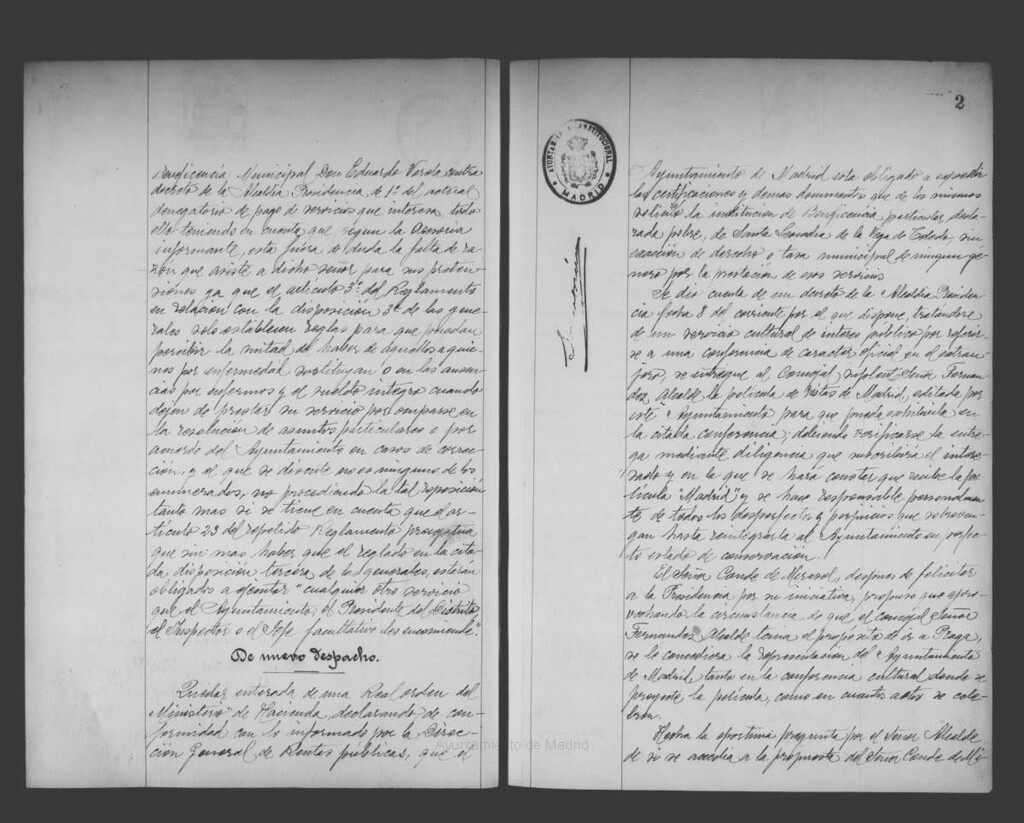 Beneficencia Municipal Don Eduardo Varela contra
decreto de la Alcaldia Presidencia de 1º del actual
denegatorio de pago de servicios que interesa, todo
ello teniendo en cuenta que segun la Asesoria
informante, está fuera de duda la falta de ra-
zón que asiste a dicho señor para sus preten-
siones ya que el articulo 3º del Reglamento
en relación con la disposición 3ª de las gene-
rales solo establecen reglas para que puedan
percibir la mitad del haber de aquellos a quie-
nes por enfermedad sustituyan o en las ausen-
cias por enfermos y el sueldo integro cuando
dejen de prestar su servicio por ocuparse en
la resolución de asuntos particulares o por
acuerdo del Ayuntamiento en casos de correc-
ción, y el que se discute no es ninguno de los
enumerados, no procediendo la tal reposición
tanto mas si se tiene en cuenta que el ar-
ticulo 23 del repetido Reglamento preceptua
que sin mas haber que el reglado en la cita-
da disposición tercera de las generales, estarán
obligados a ejecutar "cualquier otro servicio
que el Ayuntamiento, el Presidente del Distrito
el Inspector o el Jefe facultativo les encomiende".
De nuevo despacho.
Quedar enterada de una Real orden del
Ministerio de Hacienda, declarando, de con-
formidad con lo informado por la Direc-
ción General de Rentas públicas, que el
Ayuntamiento de Madrid
2
AYUNTAMIENTO CONSTITUCIONAL
MADRID
Ayuntamiento de Madrid está obligado a expedir
las certificaciones y demas documentos que de los mismos
solicite la institucion de Beneficencia particular, decla-
rada pobre, de Santa Leocadia de la Vega de Toledo, sin
exacción de derecho o tasa municipal de ningun ge-
nero por la prestacion de esos servicios
Se dio cuenta de un decreto de la Alcaldia Presiden-
cia fecha 8 del corriente por el que dispone, tratándose
de un servicio cultural de interes público por referir-
se a una conferencia de caracter oficial en el extran-
jero, se entregue al Concejal suplente Señor Fernan-
dez Alcalde la pelicula de vistas de Madrid, editada por
este Ayuntamiento para que pueda exhibirla en
la citada conferencia; debiendo verificarse la entre-
ga mediante diligencia que suscribirá el intere-
sado y en la que se hará constar que recibe la pe-
licula "Madrid" y se hace responsable personalmen-
te de todos los desperfectos y perjuicios que sobreven-
gan hasta reintegrarla al Ayuntamiento en perfec-
to estado de conservación.
El Señor Conde de Mirasol, despues de felicitar
a la Presidencia por su iniciativa, propuso que apro-
vechando la circunstancia de que el concejal Señor
Fernandez Alcalde tenia el proposito de ir a Praga,
se le concediera la representación del Ayuntamiento
de Madrid, tanto en la conferencia cultural donde se
proyecte la pelicula, como en cuantos actos se cele-
bren.
Hecha la oportuna pregunta por el Señor Alcalde
de si se accedia a la propuesta del Señor Conde de Mi-